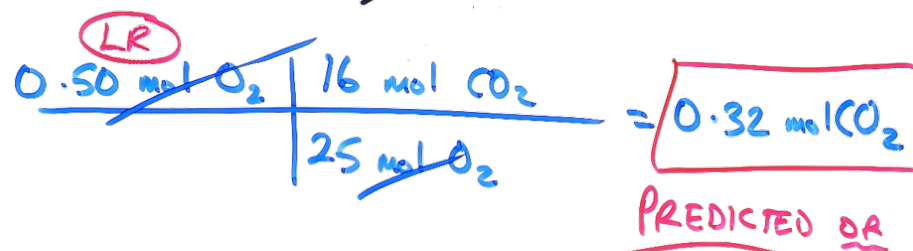 LR
0.50 mol O₂ | 16 mol CO₂ = 0.32 mol CO₂
25 mol O₂
PREDICTED OR